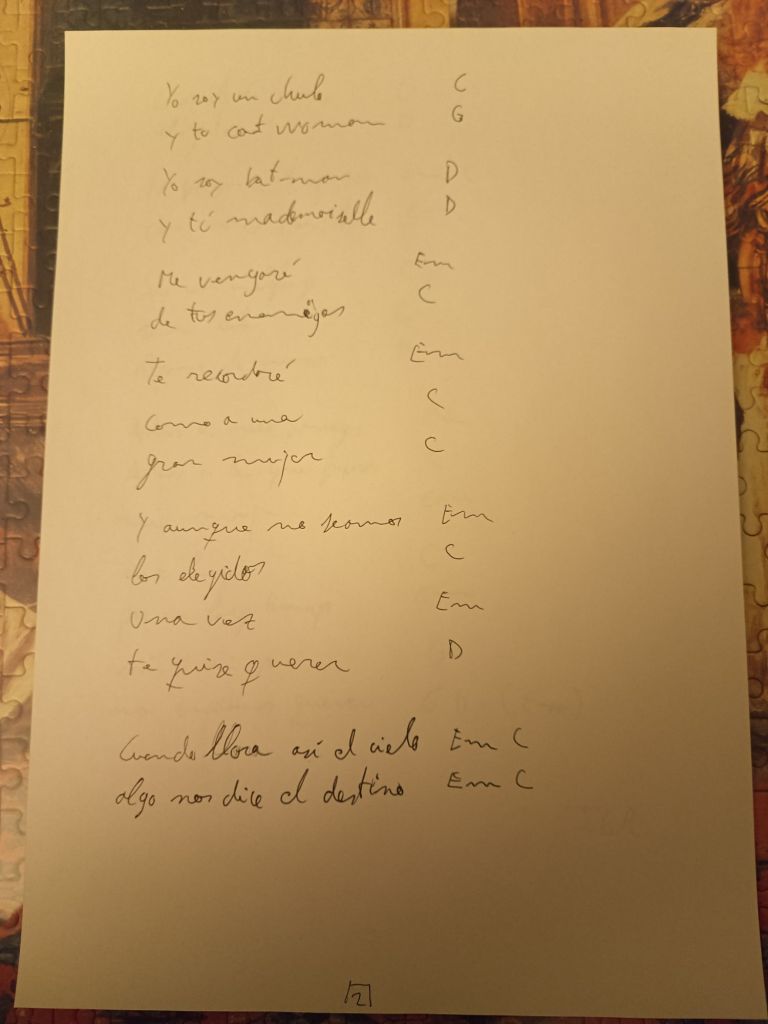 Yo soy un chulo C
y tú cat woman G
Yo soy bat-man D
y tú mademoiselle D
Me vengaré Em
de tus enemigos C
Te recordaré Em
como a una C
gran mujer C
Y aunque no seamos Em
los elegidos C
Una vez Em
te quise querer D
Cuando llora así el cielo Em C
algo nos dice el destino Em C
2